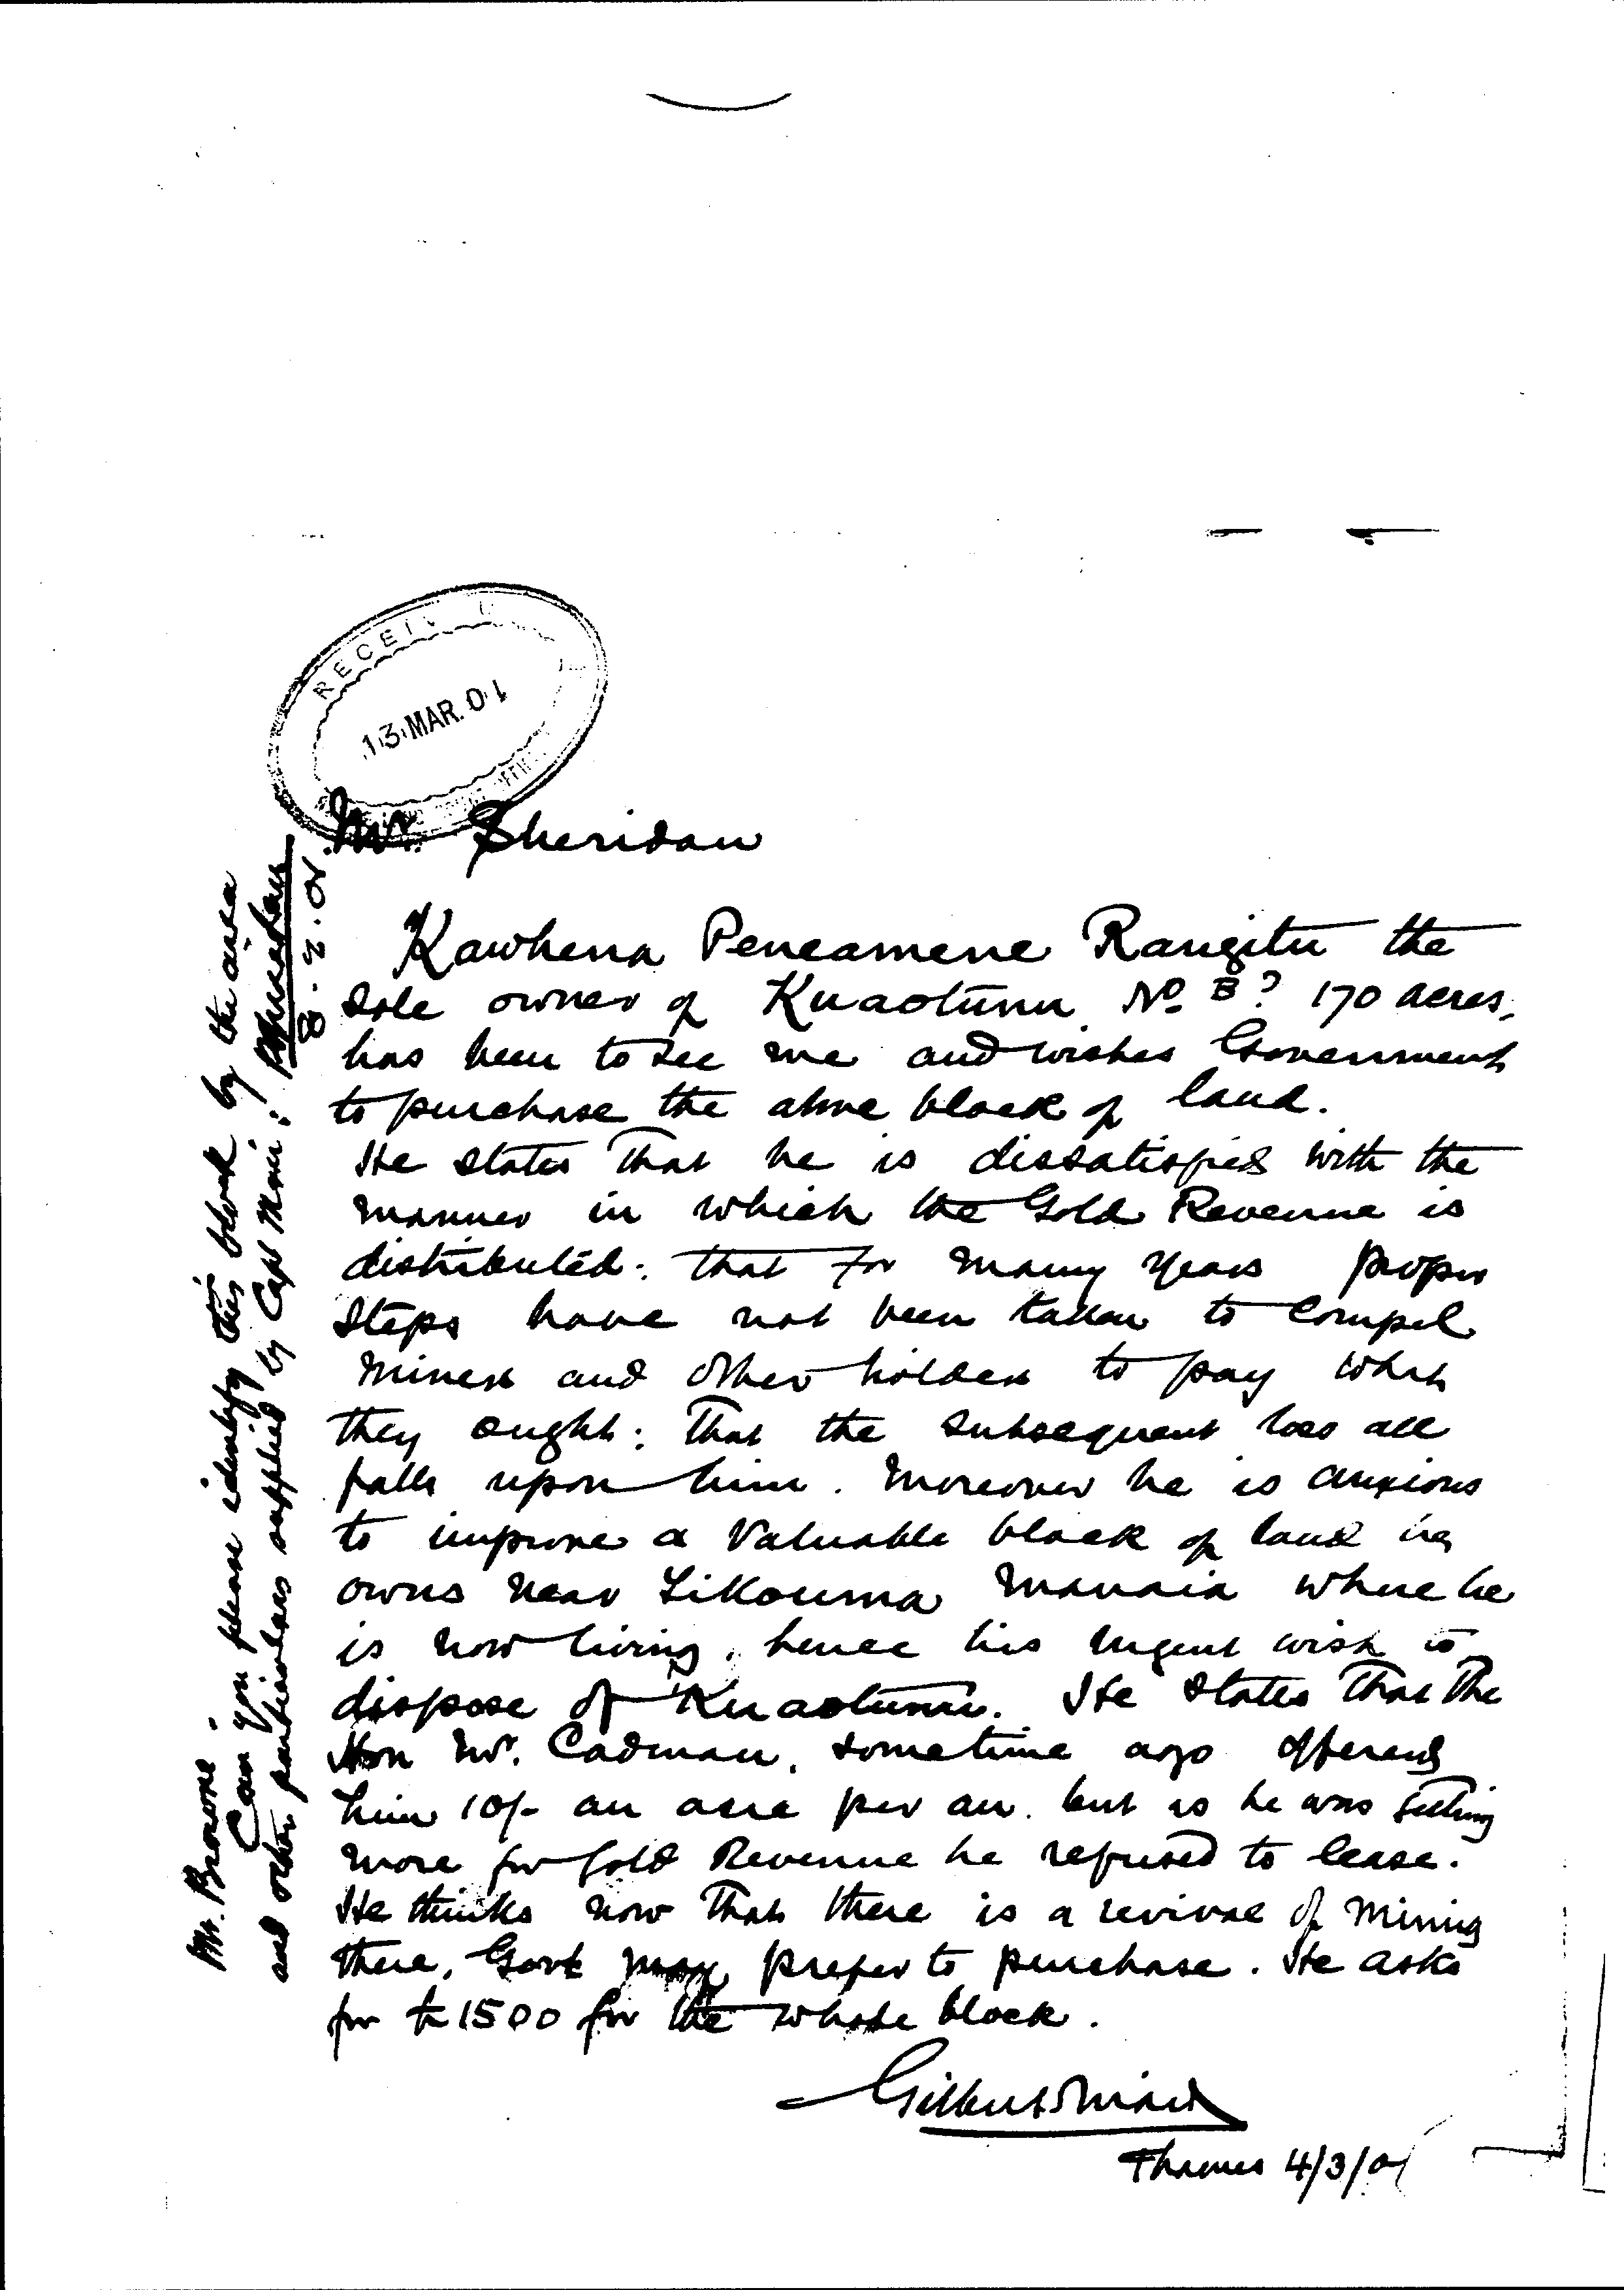 RECEIV
13 MAR. 01
Mr. Sheridan
Kawhena Peneamene Rangitu the
sole owner of Kuaotunu No. B? 170 acres,
has been to see me and wishes Government
to purchase the above block of land.
He states that he is dissatisfied with the
manner in which the Gold Revenue is
distributed: that for many years proper
steps have not been taken to compel
miners and other holders to pay what
they ought: that the subsequent loss all
falls upon him. Moreover he is anxious
to improve a valuable block of land he
owns near Tikouma Manaia where he
is now living, hence his urgent wish to
dispose of Kuaotunu. He states that the
Hon Mr. Cadman, sometime ago offered
him 10/- an acre per an. but as he was getting
more for Gold Revenue he refused to lease.
He thinks now that there is a revival of mining
there, Govt may prefer to purchase. He asks
for £1500 for the whole block.
Gilbert Mair
Thames 4/3/01
Mr. Browne.
Can you please identify this block by the area
and other particulars supplied by Capt Mair?
PSheridan
8.3.01